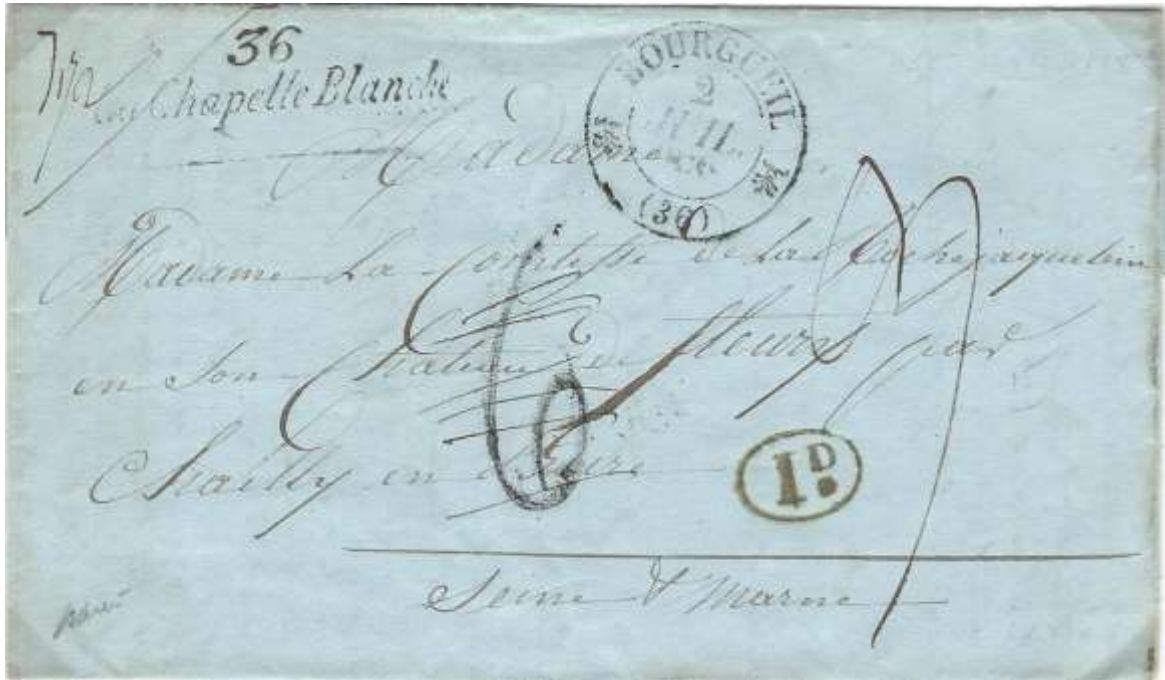 36
la Chapelle Blanche
BOURGUEIL
2
JUIL
(36)
Madame
Madame La Comtesse de La Rochejaquelein
en Son Chateau de fleury par
Chailly en Bierre
1D
Seine & Marne